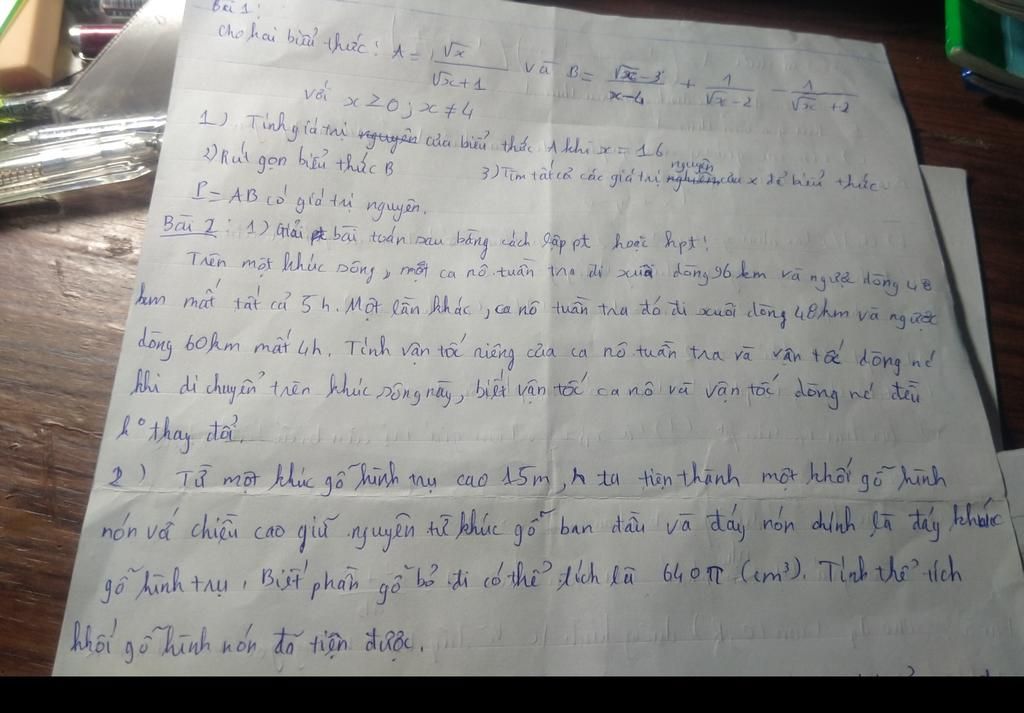 Bài 1:
Cho hai biểu thức: A = √x / (√x + 1) và B = (√x - 3)/(x - 4) + 1/(√x - 2) - 1/(√x + 2)
với x ≥ 0; x ≠ 4
1) Tính giá trị nguyên của biểu thức A khi x = 16
2) Rút gọn biểu thức B 3) Tìm tất cả các giá trị nguyên của x để biểu thức
P = AB có giá trị nguyên.
Bài 2: 1) Giải bài toán sau bằng cách lập pt hoặc hpt:
Trên một khúc sông, một ca nô tuần tra đi xuôi dòng 96 km và ngược dòng 48
km mất tất cả 5h. Một lần khác, ca nô tuần tra đó đi xuôi dòng 48km và ngược
dòng 60km mất 4h. Tính vận tốc riêng của ca nô tuần tra và vận tốc dòng nc
khi di chuyển trên khúc sông này, biết vận tốc ca nô và vận tốc dòng nc đều
k° thay đổi.
2) Từ một khúc gỗ hình trụ cao 15m, n ta tiện thành một khối gỗ hình
nón với chiều cao giữ nguyên từ khúc gỗ ban đầu và đáy nón chính là đáy khúc
gỗ hình trụ. Biết phần gỗ bỏ đi có thể tích là 640π (cm³). Tính thể tích
khối gỗ hình nón đã tiện được.